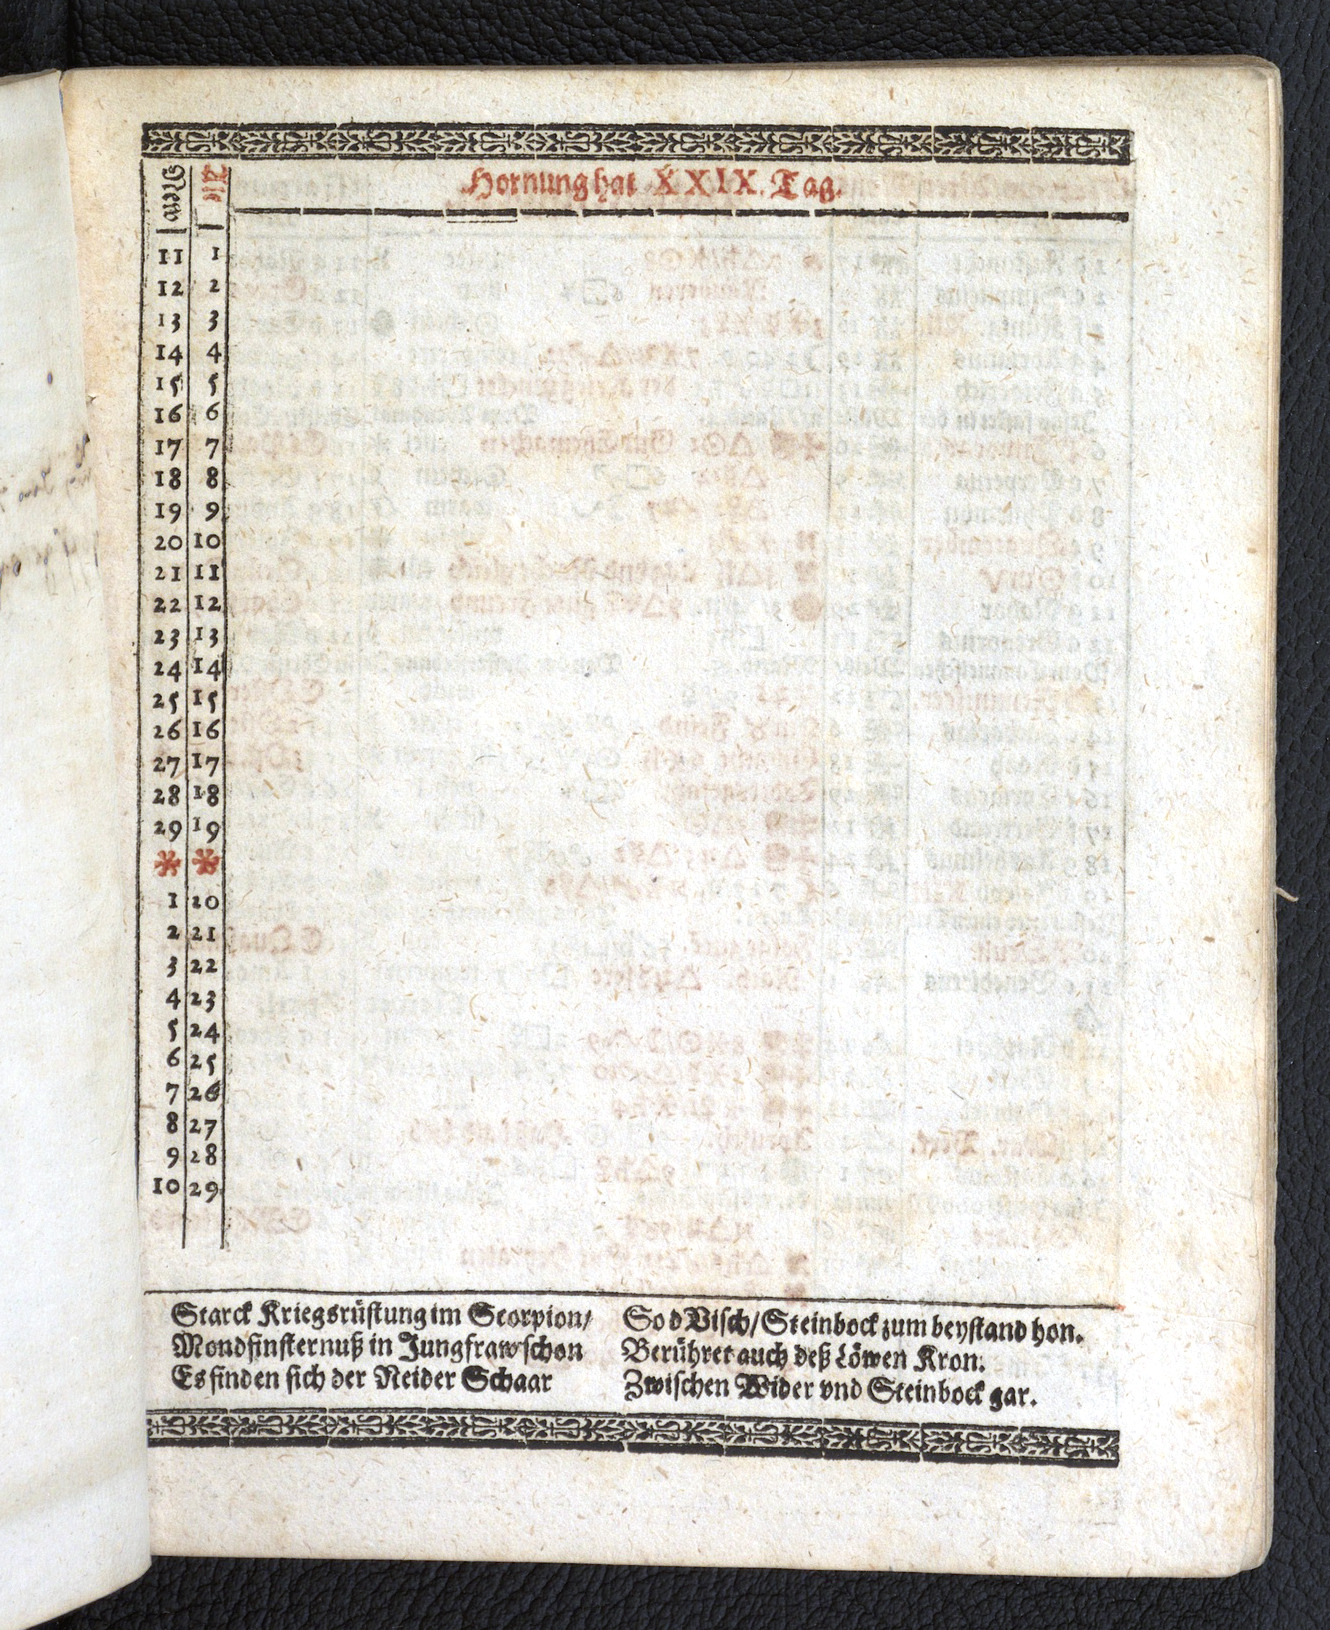 Hornung hat XXIX. Tag.
New Alt
11 1
12 2
13 3
14 4
15 5
16 6
17 7
18 8
19 9
20 10
21 11
22 12
23 13
24 14
25 15
26 16
27 17
28 18
29 19
* *
1 20
2 21
3 22
4 23
5 24
6 25
7 26
8 27
9 28
10 29
Starck Kriegsrüstung im Scorpion/
Mondfinsternuß in Jungfraw schon
Es finden sich der Neider Schaar
So d Visch/Steinbock zum beystand hon.
Berühret auch deß Löwen Kron.
Zwischen Wider vnd Steinbock gar.